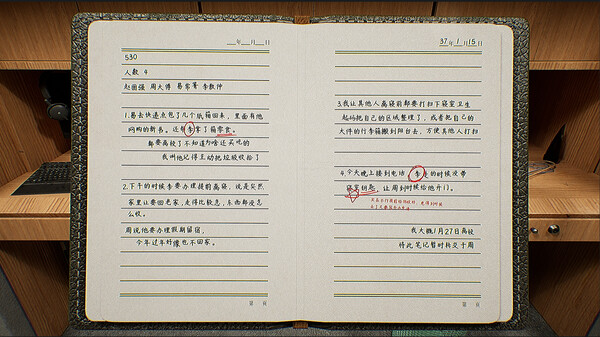 __年__月__日
530
人数 4
赵国强 周大博 易家菁 李敦仲
1.易去快递点包了几个纸箱回来,里面有他
网购的新书。还帮李拿了箱零食。
都要离校了不知道为啥还买吃的
我叫他记得主动把垃圾收拾了
2.下午的时候李要办理提前离宿,说是突然
家里让要回老家,走得比较急,东西都没怎
么收。
周说他要办理假期留宿,
今年过年好像也不回家。
第 页
37年1月15日
3.我让其他人离寝前都要打扫下寝室卫生
起码把自己的区域整理了,或者把自己的
大件的行李箱搬到阳台去,方便其他人打扫
4.今天晚上接到电话,李走的时候没带
寝室钥匙,让周到时候给他开门。
我大概1月27日离校
将此笔记暂时转交于周
第 页